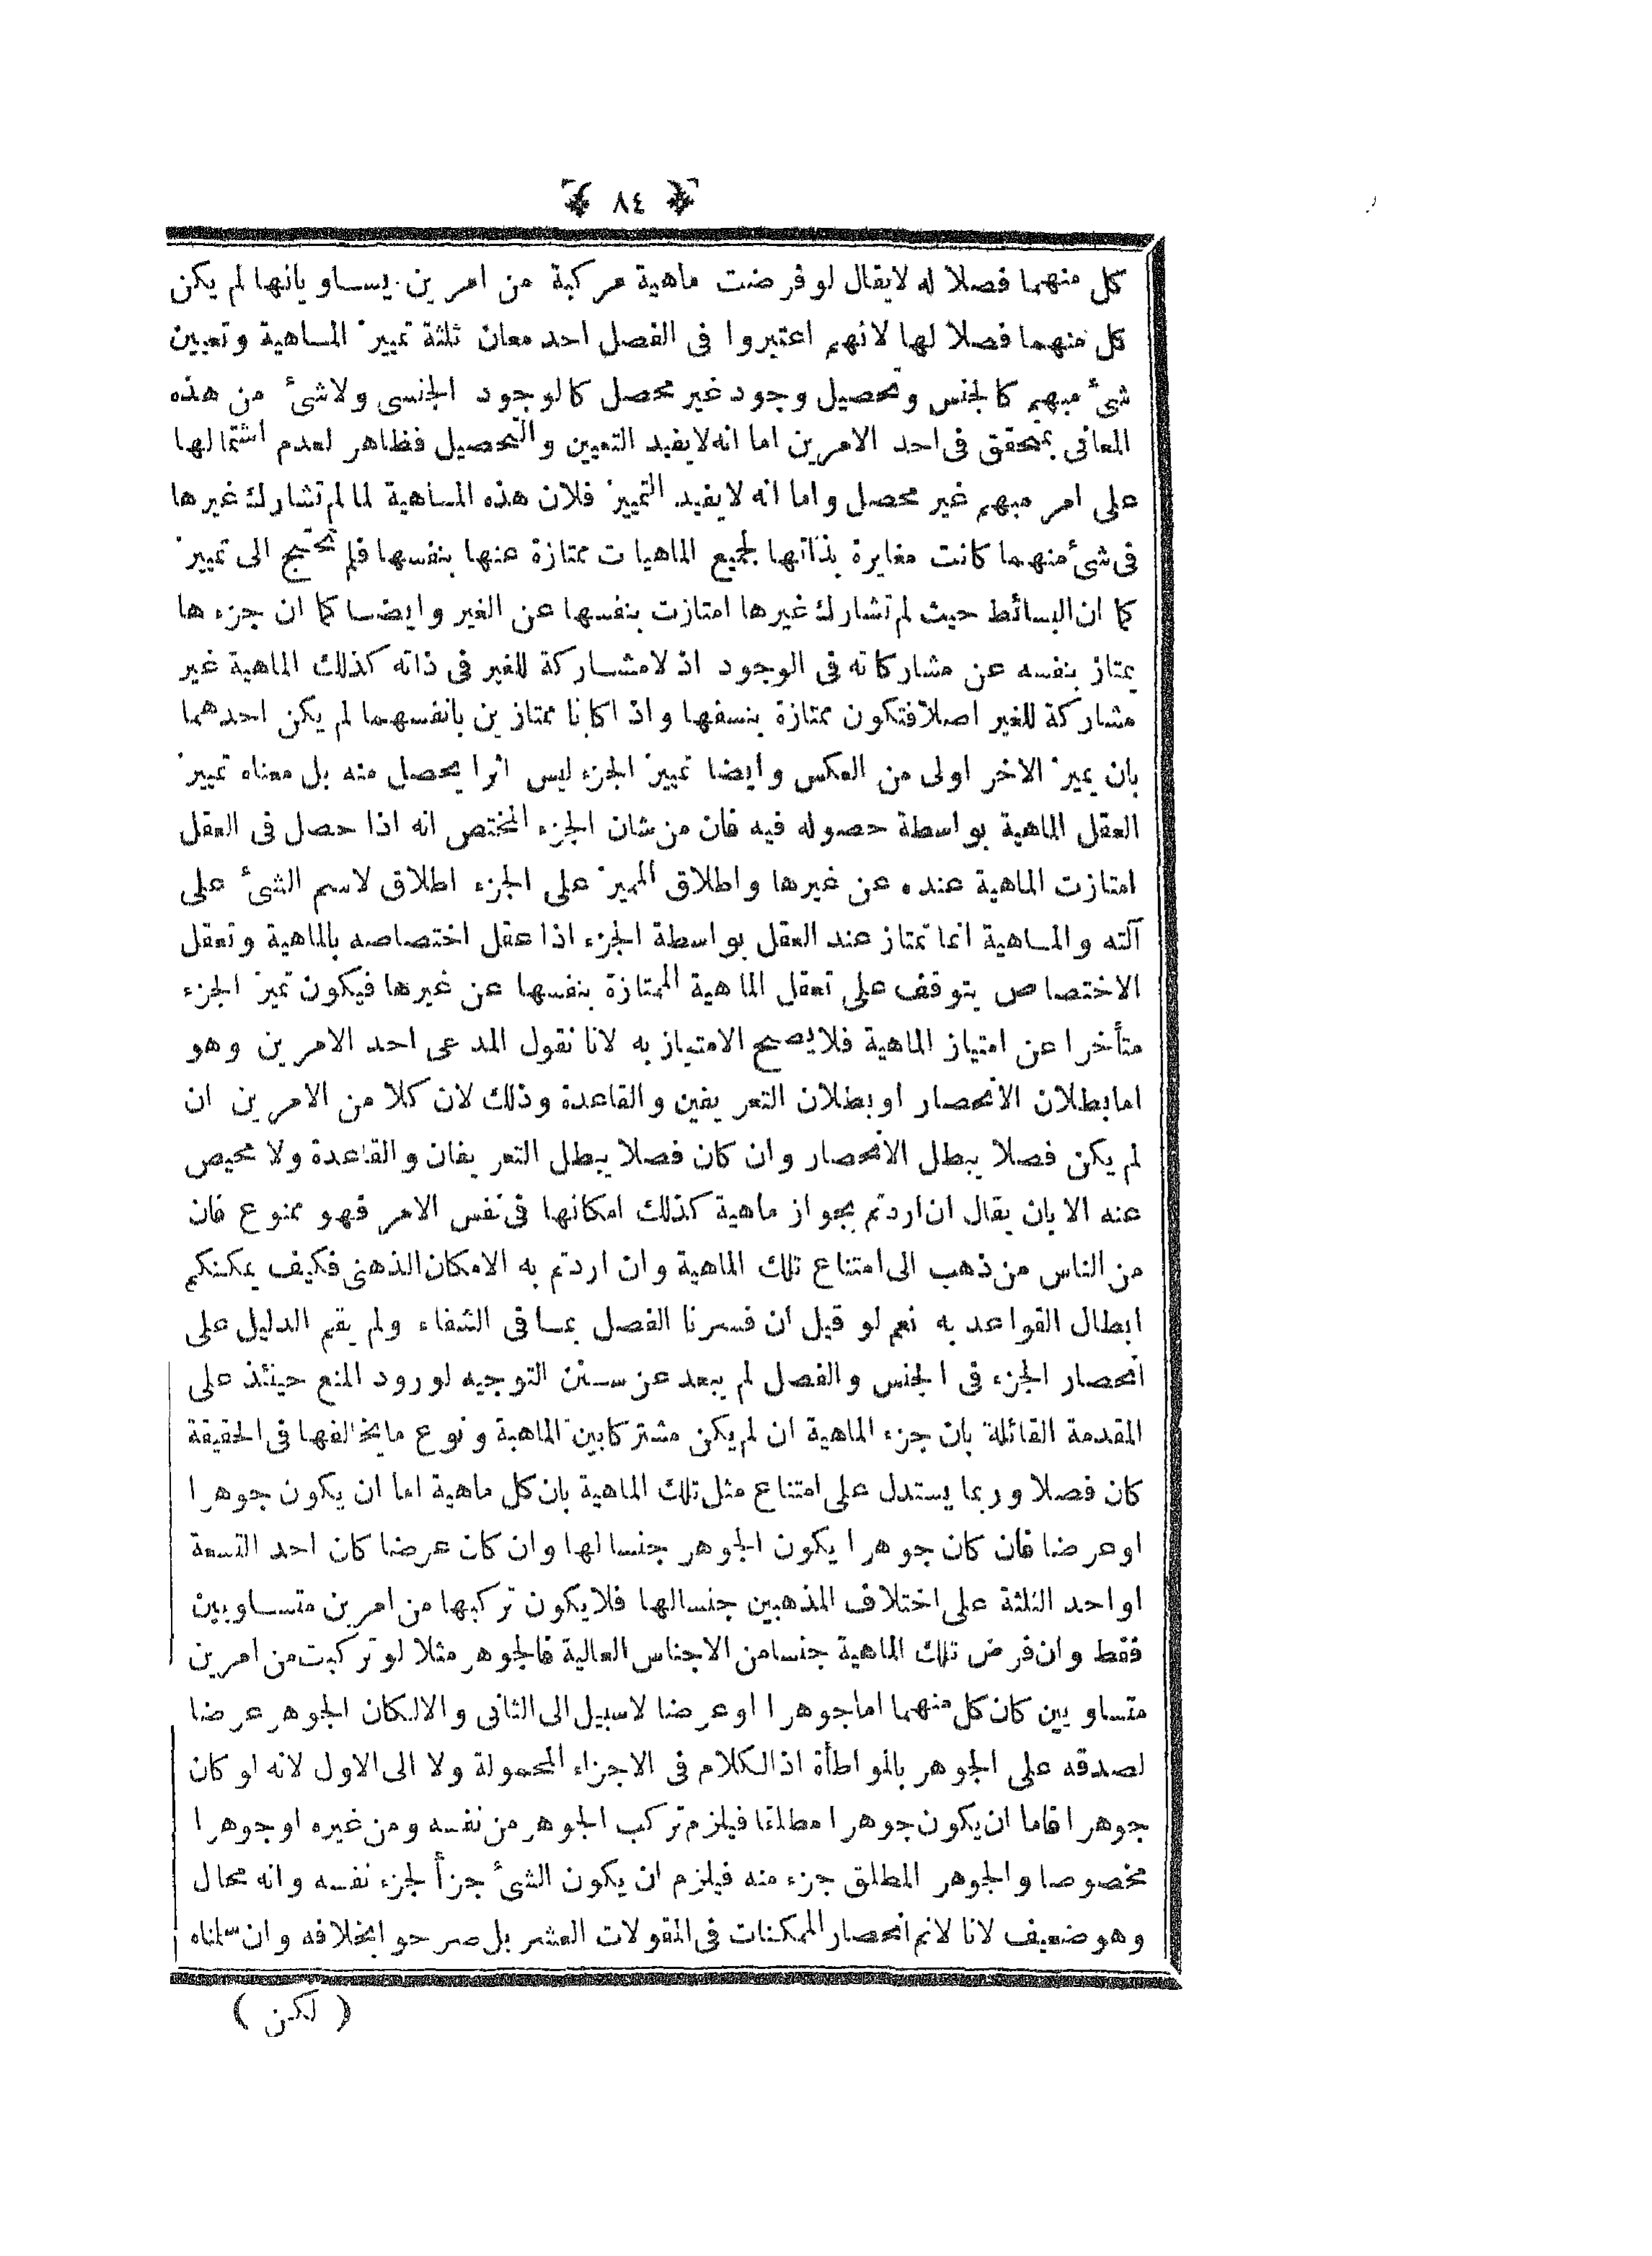 ٨٤
كل منهما فصلا له لايقال لو فرضت ماهية مركبة من امرين يساويانها لم يكن
كل منهما فصلا لها لانهم اعتبروا فى الفصل احد معان ثلثة تمييز الماهية وتعيين
شئ مبهم كالجنس وتحصيل وجود غير محصل كالوجود الجنسى ولاشئ من هذه
المعانى بمتحقق فى احد الامرين اما انه لايفيد التعيين والتحصيل فظاهر لعدم اشتمالها
على امر مبهم غير محصل واما انه لايفيد التمييز فلان هذه الماهية لما لم تشارك غيرها
فى شئ منهما كانت مغايرة بذاتها لجميع الماهيات ممتازة عنها بنفسها فلم تحتج الى تمييز
كما ان البسائط حيث لم تشارك غيرها امتازت بنفسها عن الغير وايضا كما ان جزءها
يمتاز بنفسه عن مشاركاته فى الوجود اذ لامشاركة للغير فى ذاته كذلك الماهية غير
مشاركة للغير اصلا فتكون ممتازة بنسفها واذا كانا ممتازين بانفسهما لم يكن احدهما
بان يميز الاخر اولى من العكس وايضا تمييز الجزء ليس اثرا يحصل منه بل معناه تمييز
العقل الماهية بواسطة حصوله فيه فان من شان الجزء المختص انه اذا حصل فى العقل
امتازت الماهية عنده عن غيرها واطلاق المميز على الجزء اطلاق لاسم الشئ على
آلته والماهية انما تمتاز عند العقل بواسطة الجزء اذا عقل اختصاصه بالماهية وتعقل
الاختصاص يتوقف على تعقل الماهية الممتازة بنفسها عن غيرها فيكون تميز الجزء
متأخرا عن امتياز الماهية فلايصح الامتياز به لانا نقول المدعى احد الامرين وهو
امابطلان الانحصار اوبطلان التعريفين والقاعدة وذلك لان كلا من الامرين ان
لم يكن فصلا يبطل الانحصار وان كان فصلا يبطل التعريفان والقاعدة ولا محيص
عنه الا بان يقال ان اردتم بجواز ماهية كذلك امكانها فى نفس الامر فهو ممنوع فان
من الناس من ذهب الى امتناع تلك الماهية وان اردتم به الامكان الذهنى فكيف يمكنكم
ابطال القواعد به نعم لو قيل ان فسرنا الفصل بما فى الشفاء ولم يقم الدليل على
انحصار الجزء فى الجنس والفصل لم يبعد عن سنن التوجيه لورود المنع حينئذ على
المقدمة القائلة بان جزء الماهية ان لم يكن مشتركا بين الماهية ونوع ما يخالفها فى الحقيقة
كان فصلا وربما يستدل على امتناع مثل تلك الماهية بان كل ماهية اما ان يكون جوهرا
اوعرضا فان كان جوهرا يكون الجوهر جنسا لها وان كان عرضا كان احد التسعة
او احد الثلثة على اختلاف المذهبين جنسا لها فلايكون تركبها من امرين متساويين
فقط وان فرض تلك الماهية جنسا من الاجناس العالية فالجوهر مثلا لو تركبت من امرين
متساويين كان كل منهما اما جوهرا او عرضا لاسبيل الى الثانى والا لكان الجوهر عرضا
لصدقه على الجوهر بالمواطأة اذ الكلام فى الاجزاء المحمولة ولا الى الاول لانه لو كان
جوهرا فاما ان يكون جوهرا مطلقا فيلزم تركب الجوهر من نفسه ومن غيره او جوهرا
مخصوصا والجوهر المطلق جزء منه فيلزم ان يكون الشئ جزأ لجزء نفسه وانه محال
وهو ضعيف لانا لانم انحصار الممكنات فى المقولات العشر بل صرحوا بخلافه وان سلمناه
( لكن )